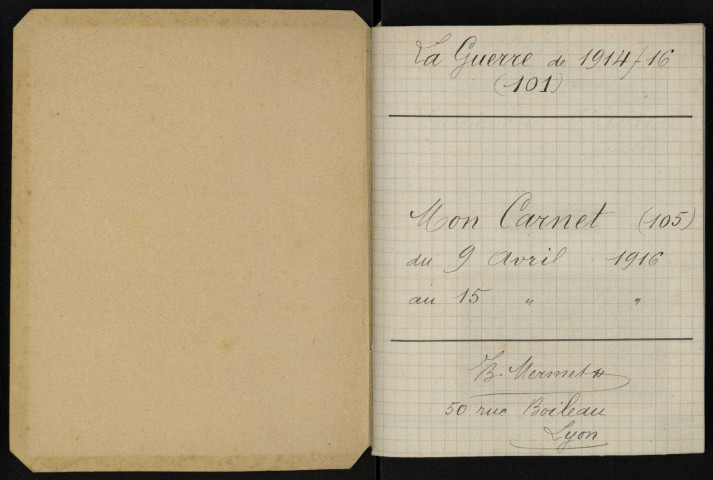 La Guerre de 1914/16
(101)
Mon Carnet (105)
du 9 avril 1916
au 15 " "
B. Mermet
50 rue Boileau
Lyon